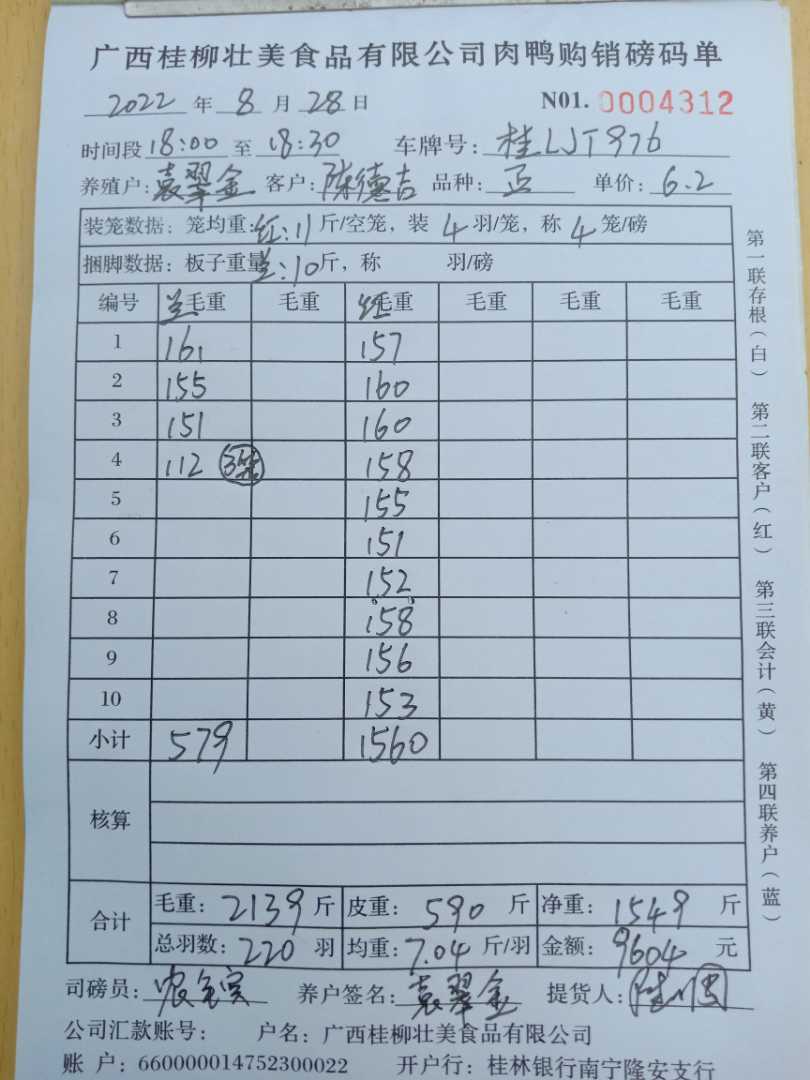 广西桂柳壮美食品有限公司肉鸭购销磅码单
2022 年 8 月 28 日 N01. 0004312
时间段 18:00 至 18:30 车牌号: 桂LJT976
养殖户: 袁翠金 客户: 陈德吉 品种: 正 单价: 6.2
装笼数据: 笼均重: 红:11 斤/空笼, 装 4 羽/笼, 称 4 笼/磅
捆脚数据: 板子重量 兰:10 斤, 称 羽/磅
编号 兰毛重 毛重 红毛重 毛重 毛重 毛重
1 161 157
2 155 160
3 151 160
4 112 3笼 158
5 155
6 151
7 152
8 158
9 156
10 153
小计 579 1560
核算
合计 毛重: 2139 斤 皮重: 590 斤 净重: 1549 斤
总羽数: 220 羽 均重: 7.04 斤/羽 金额: 9604 元
司磅员: 农 养户签名: 袁翠金 提货人:
公司汇款账号: 户名: 广西桂柳壮美食品有限公司
账 户: 660000014752300022 开户行: 桂林银行南宁隆安支行
第一联存根(白) 第二联客户(红) 第三联会计(黄) 第四联养户(蓝)